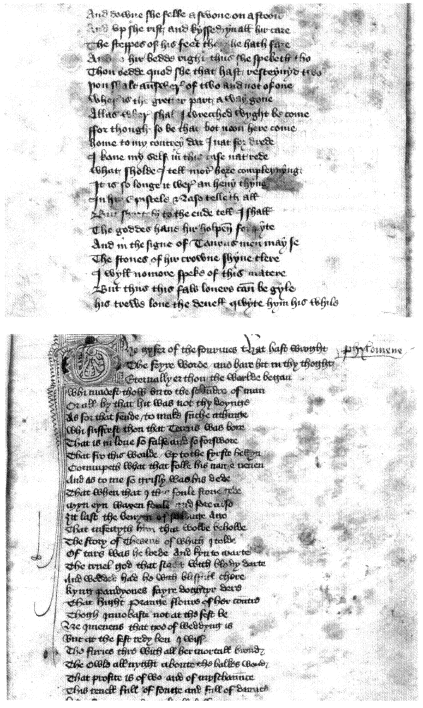 And downe she felle a swone on a stoon
And up she rist and kyssed in all hir care
The steppes of his feet ther he hath fare
And to hir bedde right thus she speketh tho
Thou bedde quod she that hast resceyuyd two
thou shalt answer of two and not of one
Wher is the greter part away gone
Allas wher shal I wrecched wyght be come
ffor though so be that bot noon here come
Home to my contrey dar I nat for drede
I kane my self in this case nat rede
What sholde I tell mor here compleynyng
It is so longe it wer an heuy thyng
In hir Epistele Naso telleth all
But shortly to the ende tell I shall
The goddes haue hir holpen for pyte
And in the signe of Taurus men may se
The stones of hir crowne shyne clere
I wyll nomore speke of this matere
But thus this fals louere can be gyle
his trewe loue the deuell qwyte hym his while
yeuer of the fourmes that hast wroght
The fayre worlde and bare hit in thy thoght
Eternally er thou the worlde began
Whi madest thou vn to the sclaundre of man
Or all by that hit was not thy doynge
As for that fende to make suche a thinge
Whi suffrest thou that Tereus was bore
That is in loue so false and so forswore
That fro this worlde up to the firste heuen
Corrumpeth what that folke his name neuen
And as to me so grisly was his dede
That when that I this foule storie rede
Myn eyn waxen foule and sore also
Yit last the venym of so longe ago
That infecteth him that wolde beholde
The story of Thereus of which I tolde
Of trace was he lorde and kyn to marte
The cruel god that stant with blody darte
And wedded had he with blisful chere
kyng pandyones fayre doghter dere
That hight Proune flour of her contre
Thogh iuno baste not at the fest be
Ne ymeneus that god of weddyng is
But at the fest redy ben I wiss
The furies thre with all her mortall bronde
The owle all nyght aboute the balkes wonde
That profite is of wo and of myschaunce
This reuell full of songe and full of daunce
phylomene